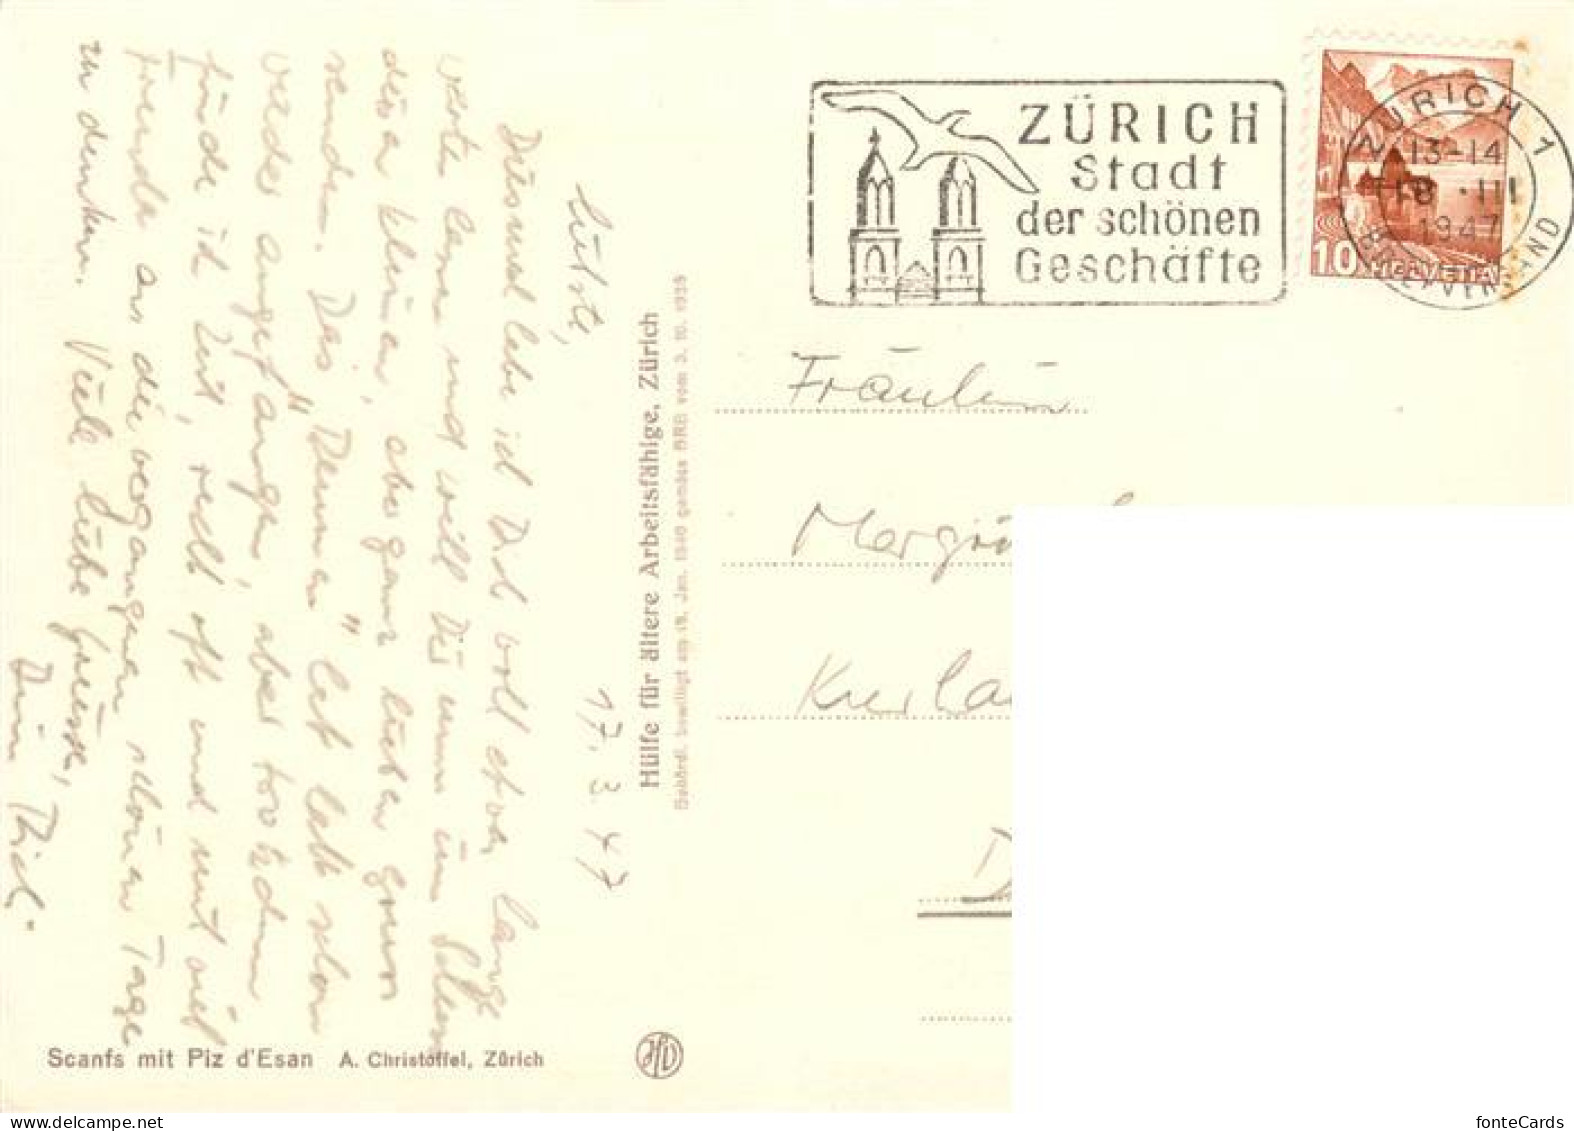 Liebste, 17.3.47
Diesmal lebe ich Dich wohl etwas lange
warten lassen und will Dir nun zum
dieser kleinen, aber ganz lieben Gruss
senden. Das "Dennen" hat halt schon
wieder angefangen, aber trotzdem
finde ich Zeit, recht oft und mit viel
Freude an die vergangenen schönen Tage
zu denken. Viele liebe Grüsse,
Dein
Scanfs mit Piz d'Esan A. Christoffel, Zürich
Hülfe für ältere Arbeitsfähige, Zürich
Behördl. bewilligt am 18. Jan. 1940 gemäss BRB vom 3. 10. 1939
ZÜRICH
Stadt
der schönen
Geschäfte
ZÜRICH 1
13-14
18.III
1947
BRIEFVERSAND
10 HELVETIA
Fräulein
D
fonteCards